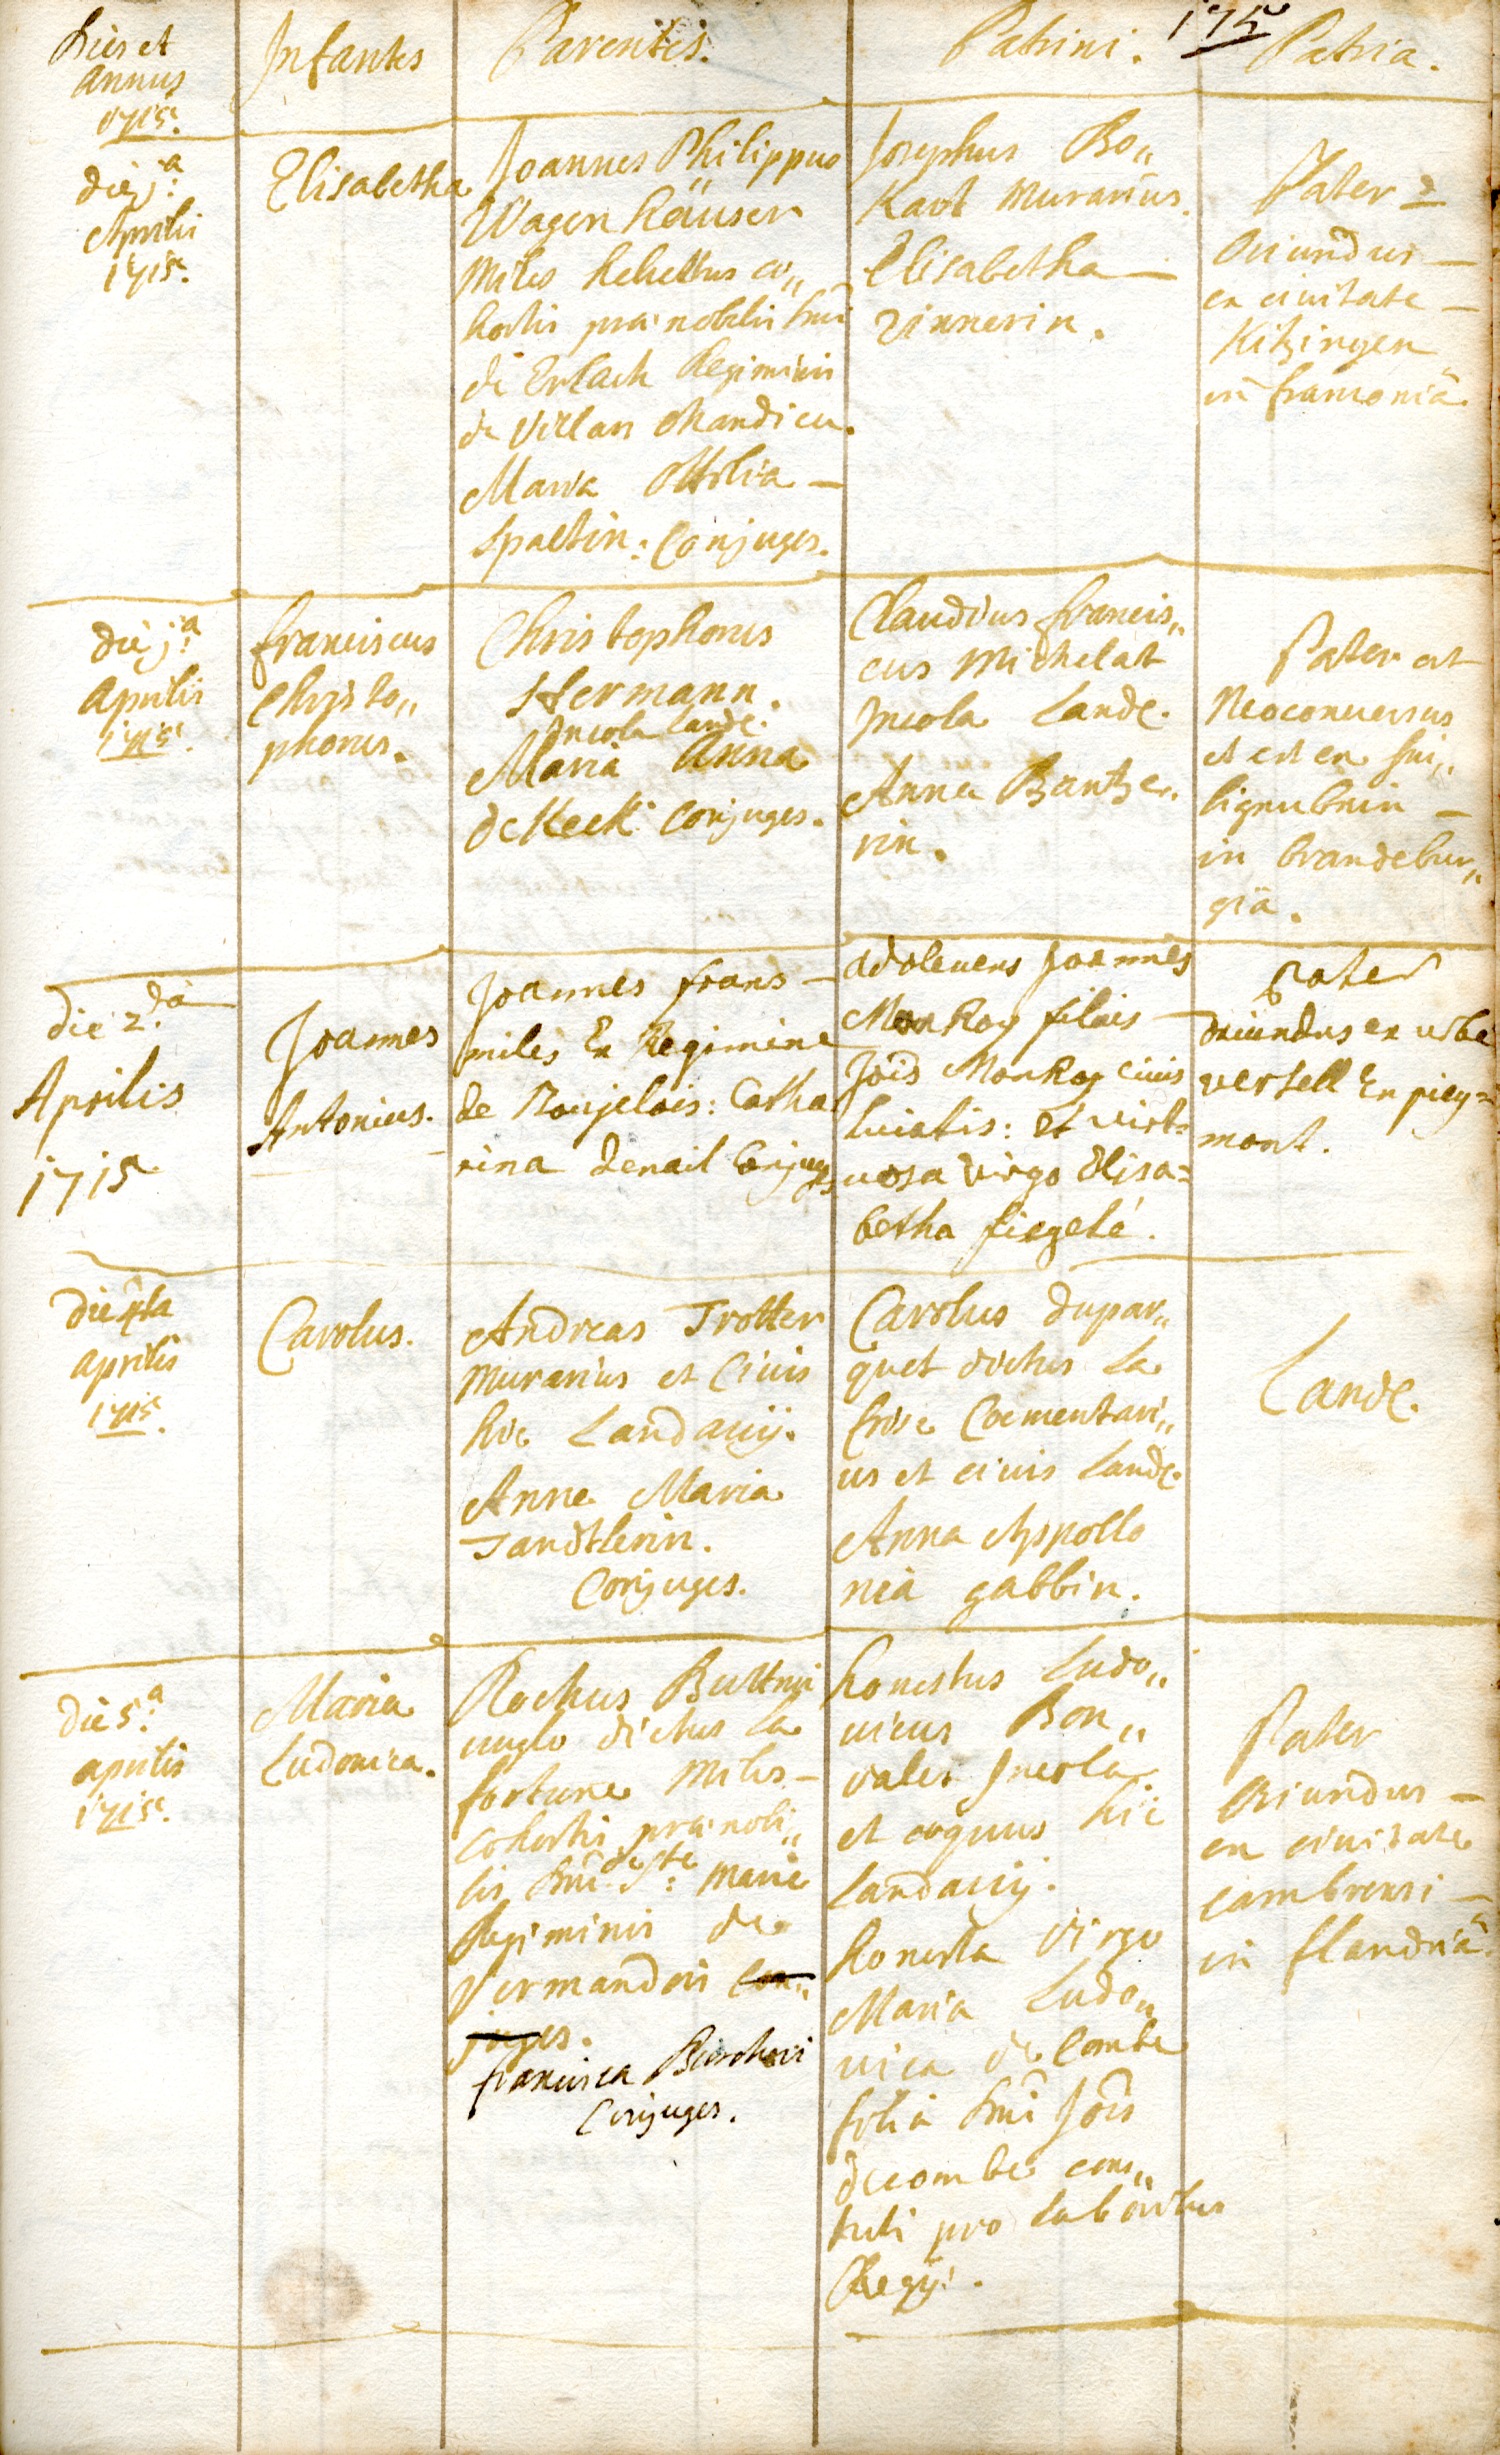 Dies et
annus
1715.
Infantes
Parentes.
Patrini.
175
Patria.
die j.a
Aprilis
1715.
Elisabetha
Joannes Philippus
Wagen häuser
miles heluetius co„
hortis prænobilis Dni
de Erlach Regiminis
de Villars Chandieu.
Maria Ottilia —
Spaltin: Conjuges.
Josephus Bo„
kart murarius.
Elisabetha —
Zinnerin.
Pater =
Oriundus —
ex ciuitate —
Kitzingen
in franconia.
die j.a
Aprilis
1715.
franciscus
Christo„
phorus.
Christophorus
Hermann.
Incola Landæ.
Maria Anna
de Keck conjuges.
Claudius francis„
cus Michelat
Incola Landæ.
Anna Bantze„
rin.
Pater est
Neoconuersus
et est ex
in brandebur„
giâ.
die 2.da
Aprilis
1715
Joannes
Antonius.
Joannes frans —
miles Ex Regimine
de Boujelois: Catha
rina denail Conjuges
adolescens Joannes
Monkoy filius
Jois Monkoy ciuis
huiatis: et virt=
uosa virgo Elisa=
betha fiegelé.
pater
oriundus ex urbe
versell En piey=
mont.
die 4ta
aprilis
1715.
Carolus.
Andreas Trotter
murarius et Ciuis
hic Landauij.
Anna Maria
Tandtlerin.
Conjuges.
Carolus dupar„
quet dictus La
Crose Coementari„
us et ciuis Landæ.
Anna Appollo
nia gabbin.
Landæ.
die 5.a
aprilis
1715.
Maria
Ludouica.
Rochus
dictus La
fortune Miles —
cohortis prænobi„
lis Dni de Ste: Marie
Regiminis de
Vermandois con„
juges.
francisca
Conjuges.
honestus Ludo„
uicus Bon„
valet Incola
et coquus hic
Landauij.
honesta Virgo
Maria Ludo„
uica de Combe
filia Dni Jois
decombe
pro Laboribus
Regijs.
Pater
Oriundus —
ex ciuitate
cambrensi —
in flandriâ.